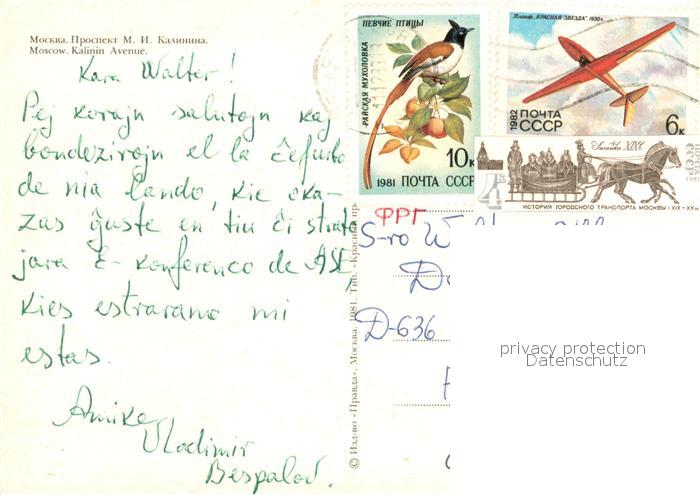 Москва. Проспект М. И. Калинина.
Moscow. Kalinin Avenue.
Kara Walter!
Plej korajn salutojn kaj
bondezirojn el la ĉefurbo
de nia lando, kie oka-
zas ĝuste en tiu ĉi
jara E-konferenco de ASE,
kies estrarano mi
estas.
Amike,
Vladimir
Bespalov.
ПЕВЧИЕ ПТИЦЫ
РАЙСКАЯ МУХОЛОВКА
10к
1981 ПОЧТА СССР
Планер „КРАСНАЯ ЗВЕЗДА”. 1930г.
1982 ПОЧТА СССР
6к
Линейка XIX в.
ПОЧТА СССР
ИСТОРИЯ ГОРОДСКОГО ТРАНСПОРТА МОСКВЫ (XIX-XX вв.)
ФРГ
S-ro W
D-636
© Изд-во «Правда», Москва. 1981. Тип. «Красный пр
privacy protection
Datenschutz